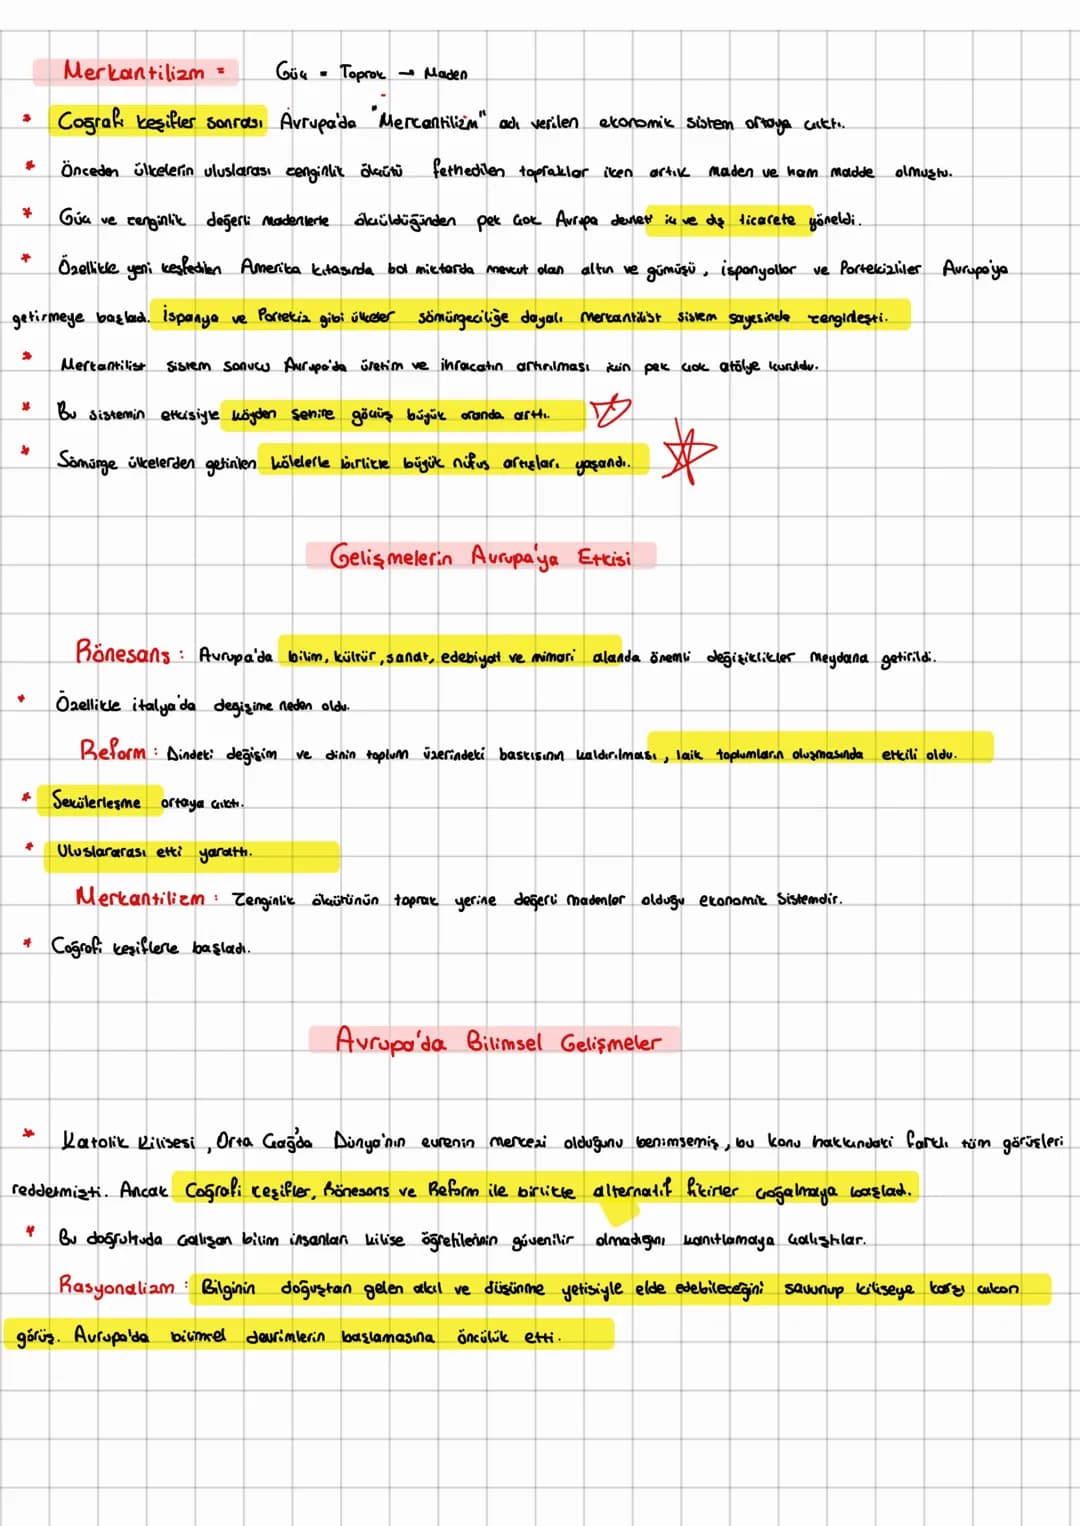 Merkantilizm = Güç = Toprak → Maden
* Coğrafi keşifler sonrası Avrupa'da "Mercantilizm" adı verilen ekonomik sistem ortaya çıktı.
* Önceden ülkelerin uluslarası zenginlik ölçütü fethedilen topraklar iken artık maden ve ham madde olmuştu.
* Güç ve zenginlik değerli madenlerle ölçüldüğünden pek çok Avrupa devleti iç ve dış ticarete yöneldi.
* Özellikle yeni keşfedilen Amerika kıtasında bol miktarda mevcut olan altın ve gümüşü, ispanyollar ve Portekizliler Avrupa'ya
getirmeye başladı. İspanya ve Portekiz gibi ülkeler sömürgeciliğe dayalı merkantilist sistem sayesinde zenginleşti.
* Merkantilist sistem sonucu Avrupa'da üretim ve ihracatın artırılması için pek çok atölye kuruldu.
* Bu sistemin etkisiyle köyden şehire göçüş büyük oranda arttı.
* Sömürge ülkelerden getirilen kölelerle birlikte büyük nüfus artışları yaşandı.
Gelişmelerin Avrupa'ya Etkisi
Rönesans : Avrupa'da bilim, kültür, sanat, edebiyat ve mimari alanda önemli değişiklikler meydana getirildi.
* Özellikle italya'da değişime neden oldu.
Reform : Dindeki değişim ve dinin toplum üzerindeki baskısının kaldırılması, laik toplumların oluşmasında etkili oldu.
* Sekülerleşme ortaya çıktı.
* Uluslararası etki yarattı.
Merkantilizm : Zenginlik ölçütünün toprak yerine değerli madenler olduğu ekonomik sistemdir.
* Coğrafi keşiflerle başladı.
Avrupa'da Bilimsel Gelişmeler
* Katolik Kilisesi, Orta Çağda Dünya'nın evrenin merkezi olduğunu benimsemiş, bu konu hakkındaki farklı tüm görüşleri
reddetmişti. Ancak Coğrafi keşifler, Rönesans ve Reform ile birlikte alternatif fikirler çoğalmaya başladı.
* Bu doğrultuda çalışan bilim insanları kilise öğretilerinin güvenilir olmadığını kanıtlamaya çalıştılar.
Rasyonalizm : Bilginin doğuştan gelen akıl ve düşünme yetisiyle elde edebileceğini savunup kiliseye karşı çıkan
görüş. Avrupa'da bilimsel devrimlerin başlamasına öncülük etti.